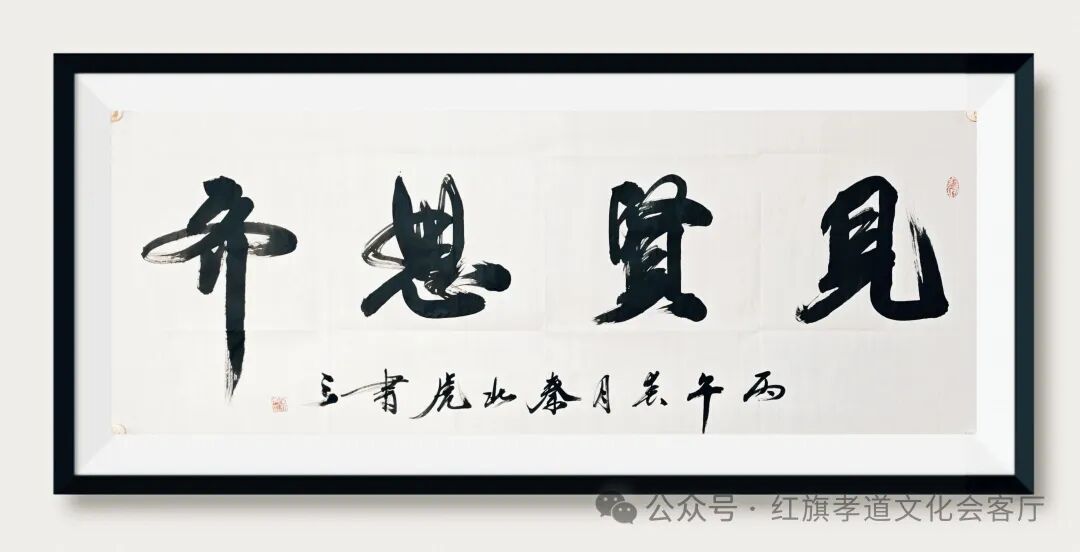 見賢思齐
丙午春月秦北虎書
公众号 · 红旗孝道文化会客厅